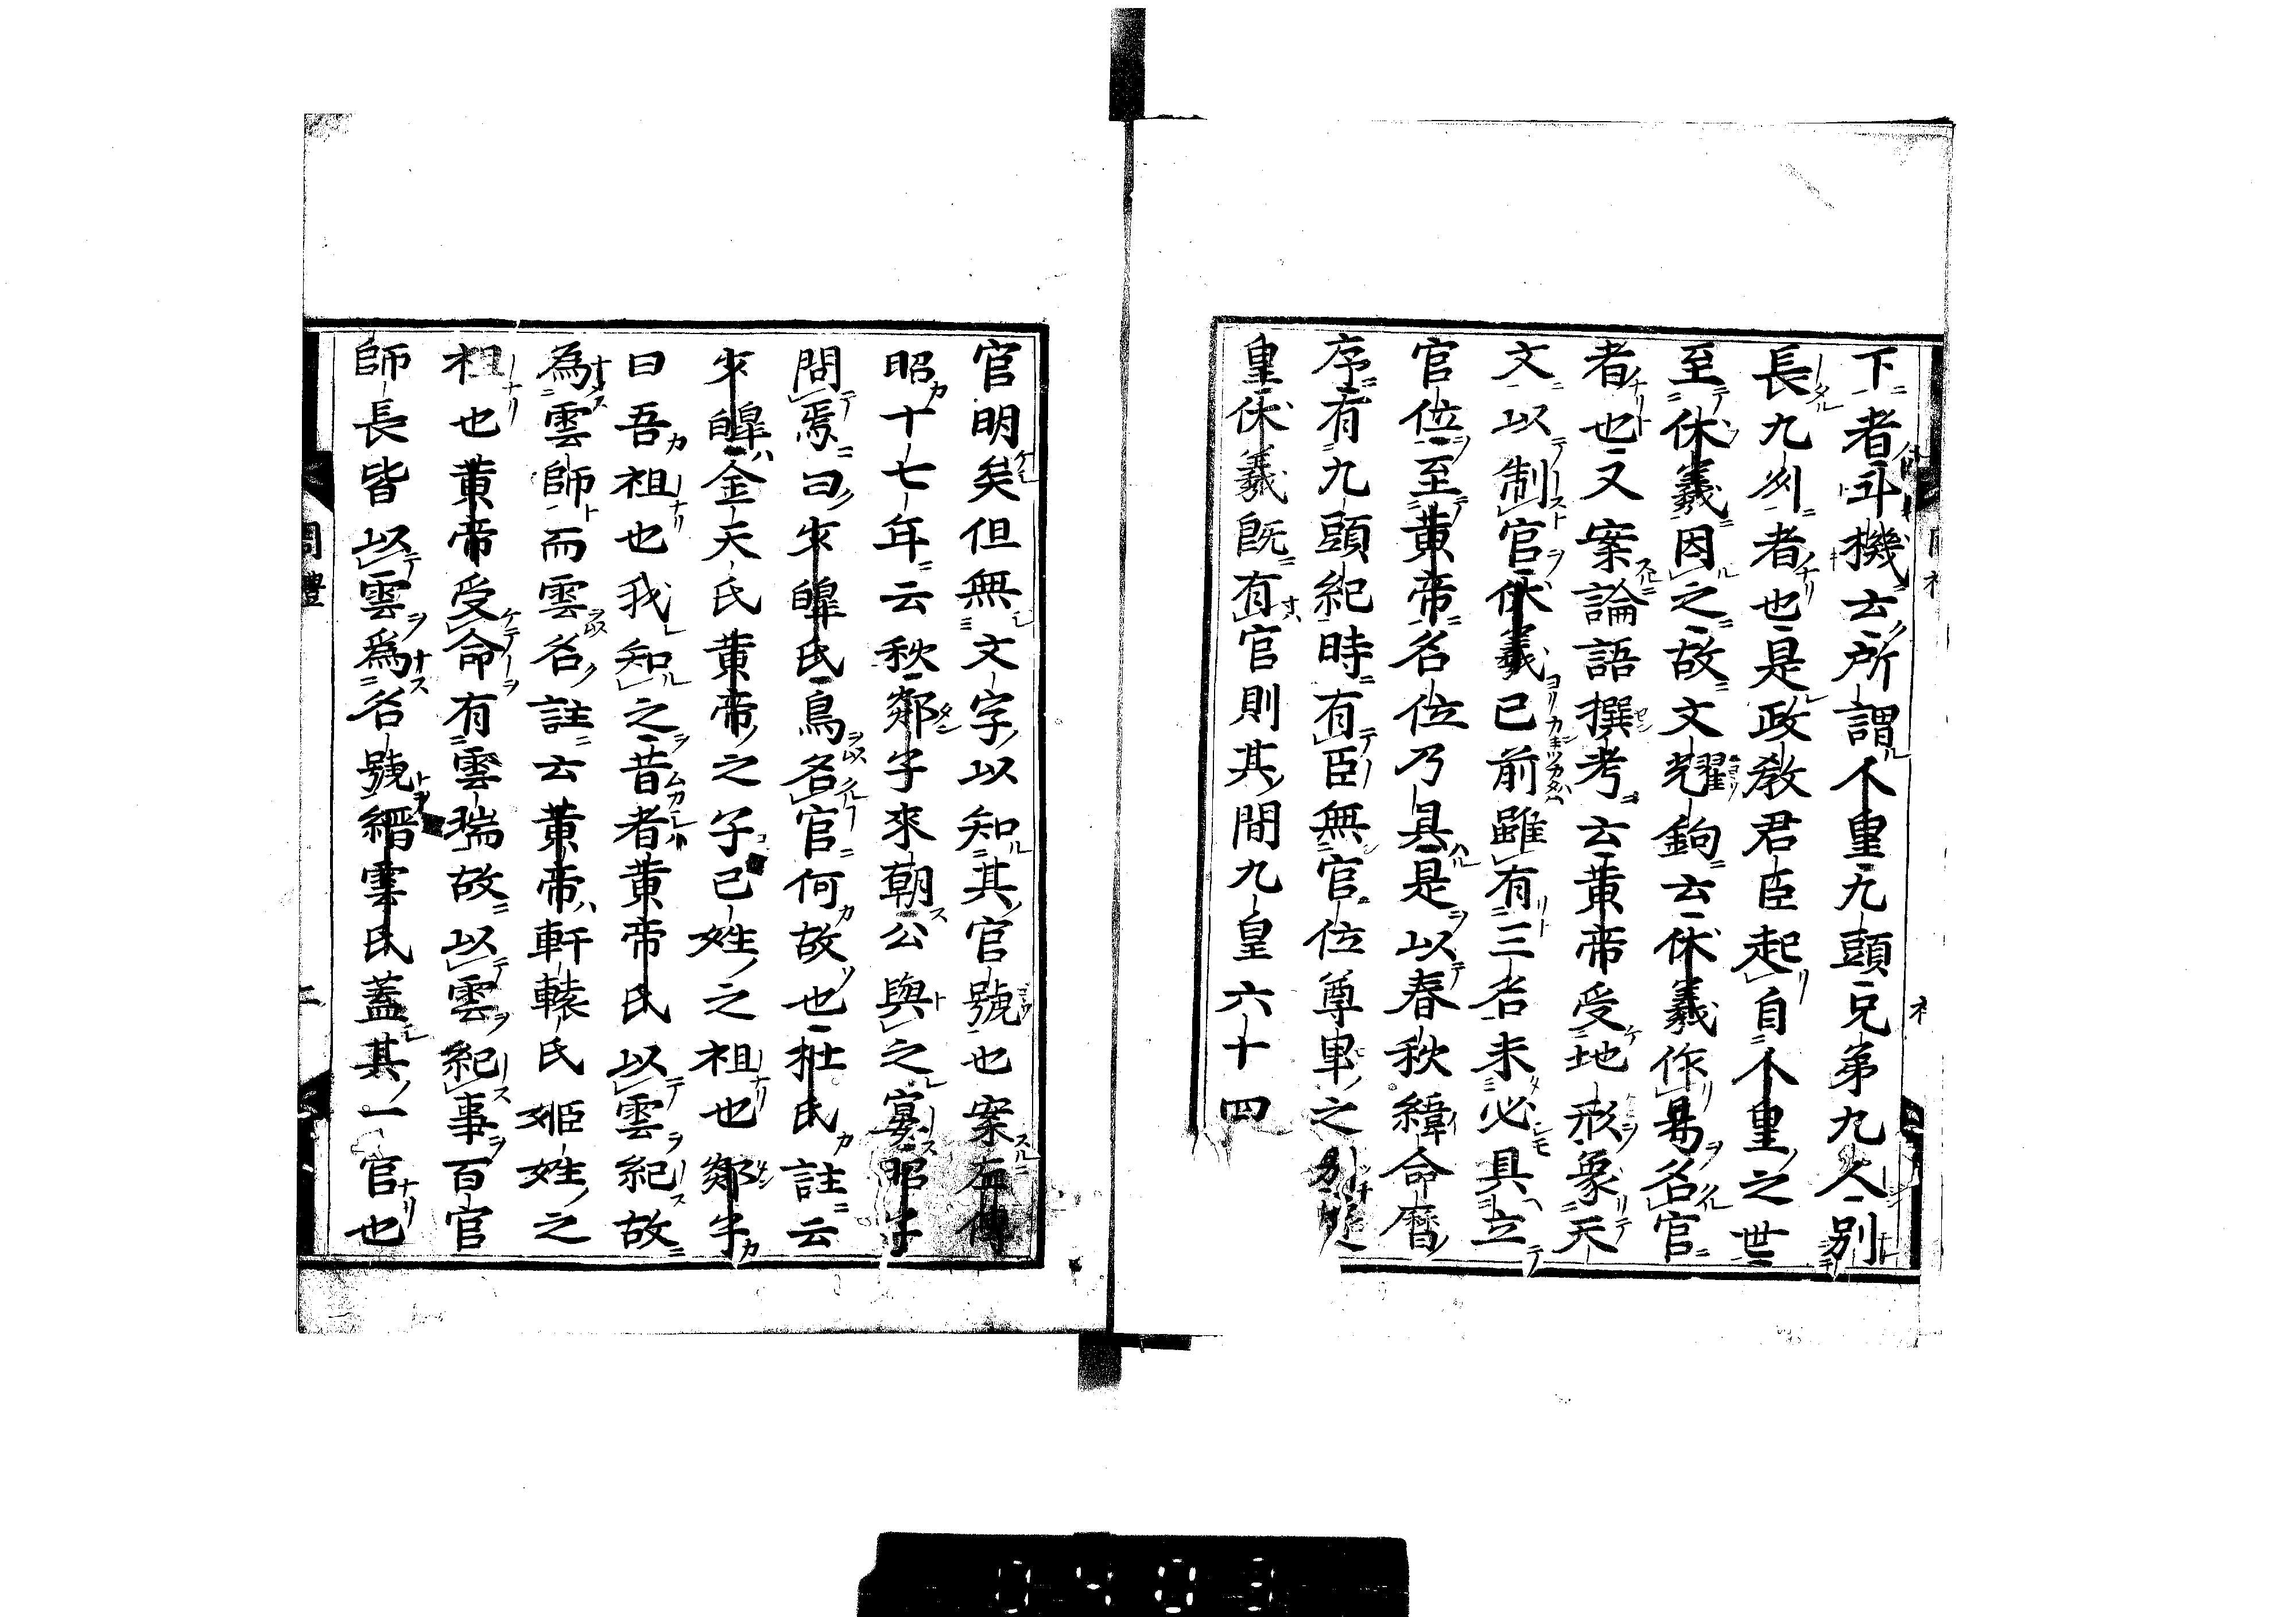 下者斗機云所謂人皇九頭兄弟九人別
長九州者也是政教君臣起自人皇之世
至伏羲因之故文耀鉤云伏羲作易名官
者也又案論語撰考云黃帝受地形象天
文以制官伏羲已前雖有三名未必具立
官位至黃帝名位乃具是以春秋緯命曆
序有九頭紀時有臣無官位尊卑之別
皇伏羲旣有官則其間九皇六十四
官明矣但無文字以知其官號也案左傳
昭十七年云秋郯子來朝公與之宴昭子
問焉曰少皥氏鳥名官何故也杜氏註云
少皥金天氏黃帝之子己姓之祖也郯子
曰吾祖也我知之昔者黃帝氏以雲紀故
為雲師而雲名註云黃帝軒轅氏姬姓之
祖也黃帝受命有雲瑞故以雲紀事百官
師長皆以雲爲名號縉雲氏蓋其一官也
周禮
二
0403